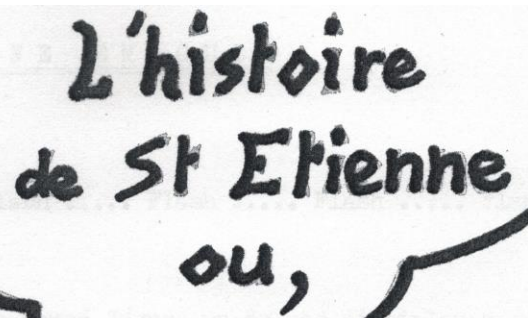 L'histoire
de St Etienne
ou,